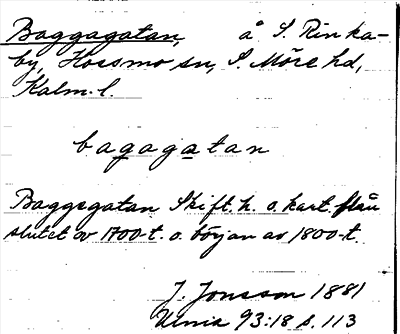 Baggagatan, å S. Rinka-
by, Hossmo sn, S. Möre hd,
Kalm. l.
bagagatan
Baggegatan Skift. h. o. kart. från
slutet av 1700-t. o. början av 1800-t.
J. Jonsson 1881
93:18 s. 113